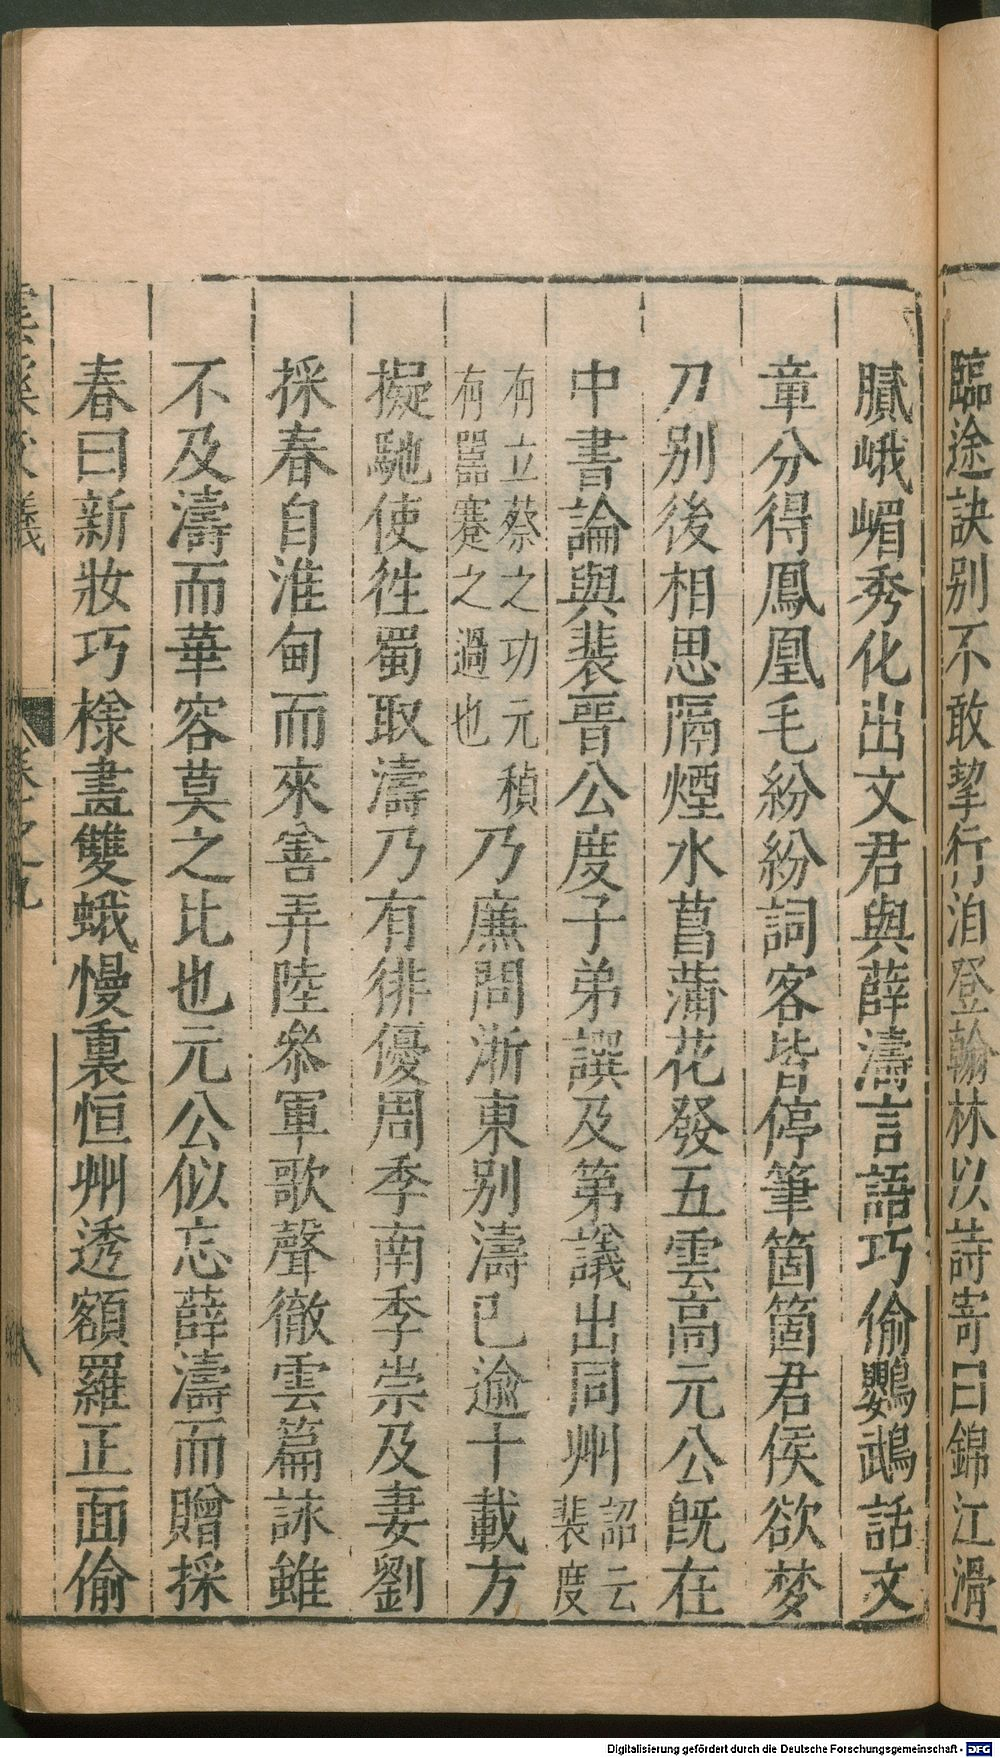 臨途訣别不敢挈行洎登翰林以詩寄曰錦江滑
膩峨嵋秀化出文君與薛濤言語巧偷鸚鵡話文
章分得鳳凰毛紛紛詞客皆停筆箇箇君侯欲夢
刀别後相思隔煙水菖蒲花發五雲高元公旣在
中書論與裴晉公度子弟譔及第議出同州詔云裴度
有立蔡之功元稹有嚚蹇之過也乃廉問浙東别濤已逾十載方
擬馳使徃蜀取濤乃有徘優周季南季崇及妻劉
採春自淮甸而來善弄陸叅軍歌聲徹雲篇詠雖
不及濤而華容莫之比也元公似忘薛濤而贈採
春曰新妝巧樣畫雙蛾慢裏恒州透額羅正面偷
雲溪友議 卷之九 八
Digitalisierung gefördert durch die Deutsche Forschungsgemeinschaft - DFG